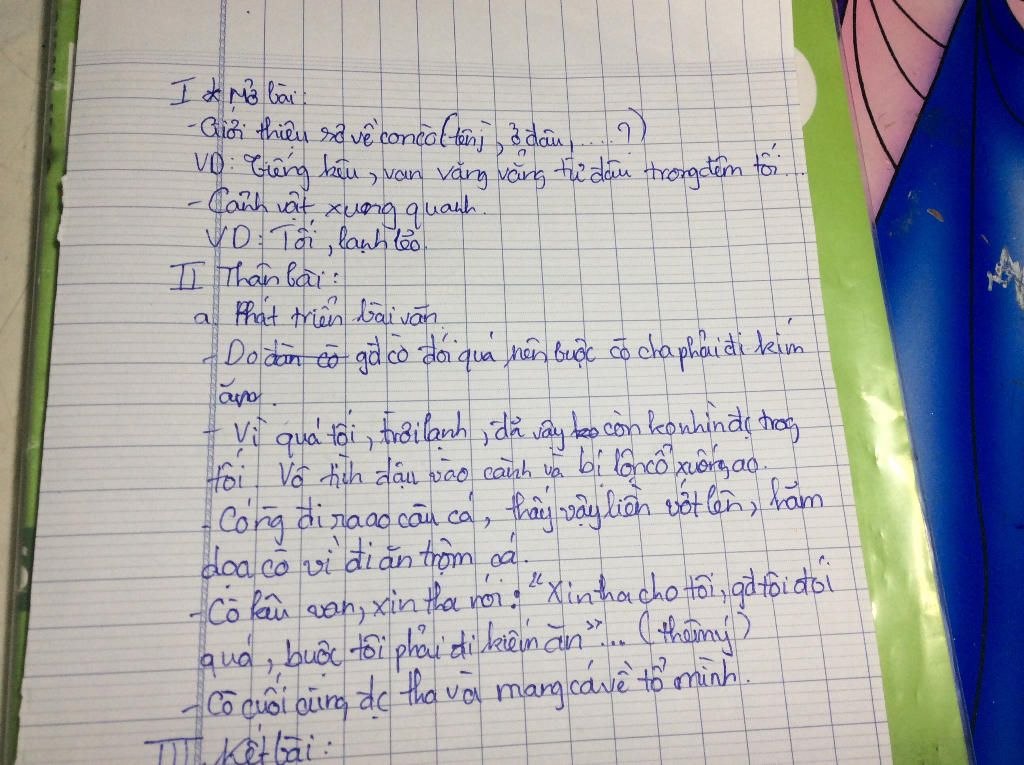 I * Mở bài:
- Giới thiệu sơ về con cò (tên, ở đâu, .....?)
VD: Tiếng kêu, van vẳng vẳng từ đâu trong đêm tối...
- Cảnh vật xung quanh.
VD: Tối, lạnh lẽo.
II Thân bài:
a Phát triển bài văn
- Do đàn cò gđ cò đói quá nên buộc cò cha phải đi kím
ăng.
- Vì quá tối, trời lạnh, đã vậy còn ko nhìn đc trog
tối. Vô tình đậu vào cành và bị lộn cổ xuống ao.
- Có ng đi ra ao câu cá, thấy vậy liền vớt lên, hăm
dọa cò vì đi ăn trộm cá.
- Cò kêu van, xin tha nói: "Xin tha cho tôi, gđ tôi đói
quá, buộc tôi phải đi kiếm ăn"... (thêm ý)
- Cò cuối cùng đc tha và mang cá về tổ mình.
III Kết bài: